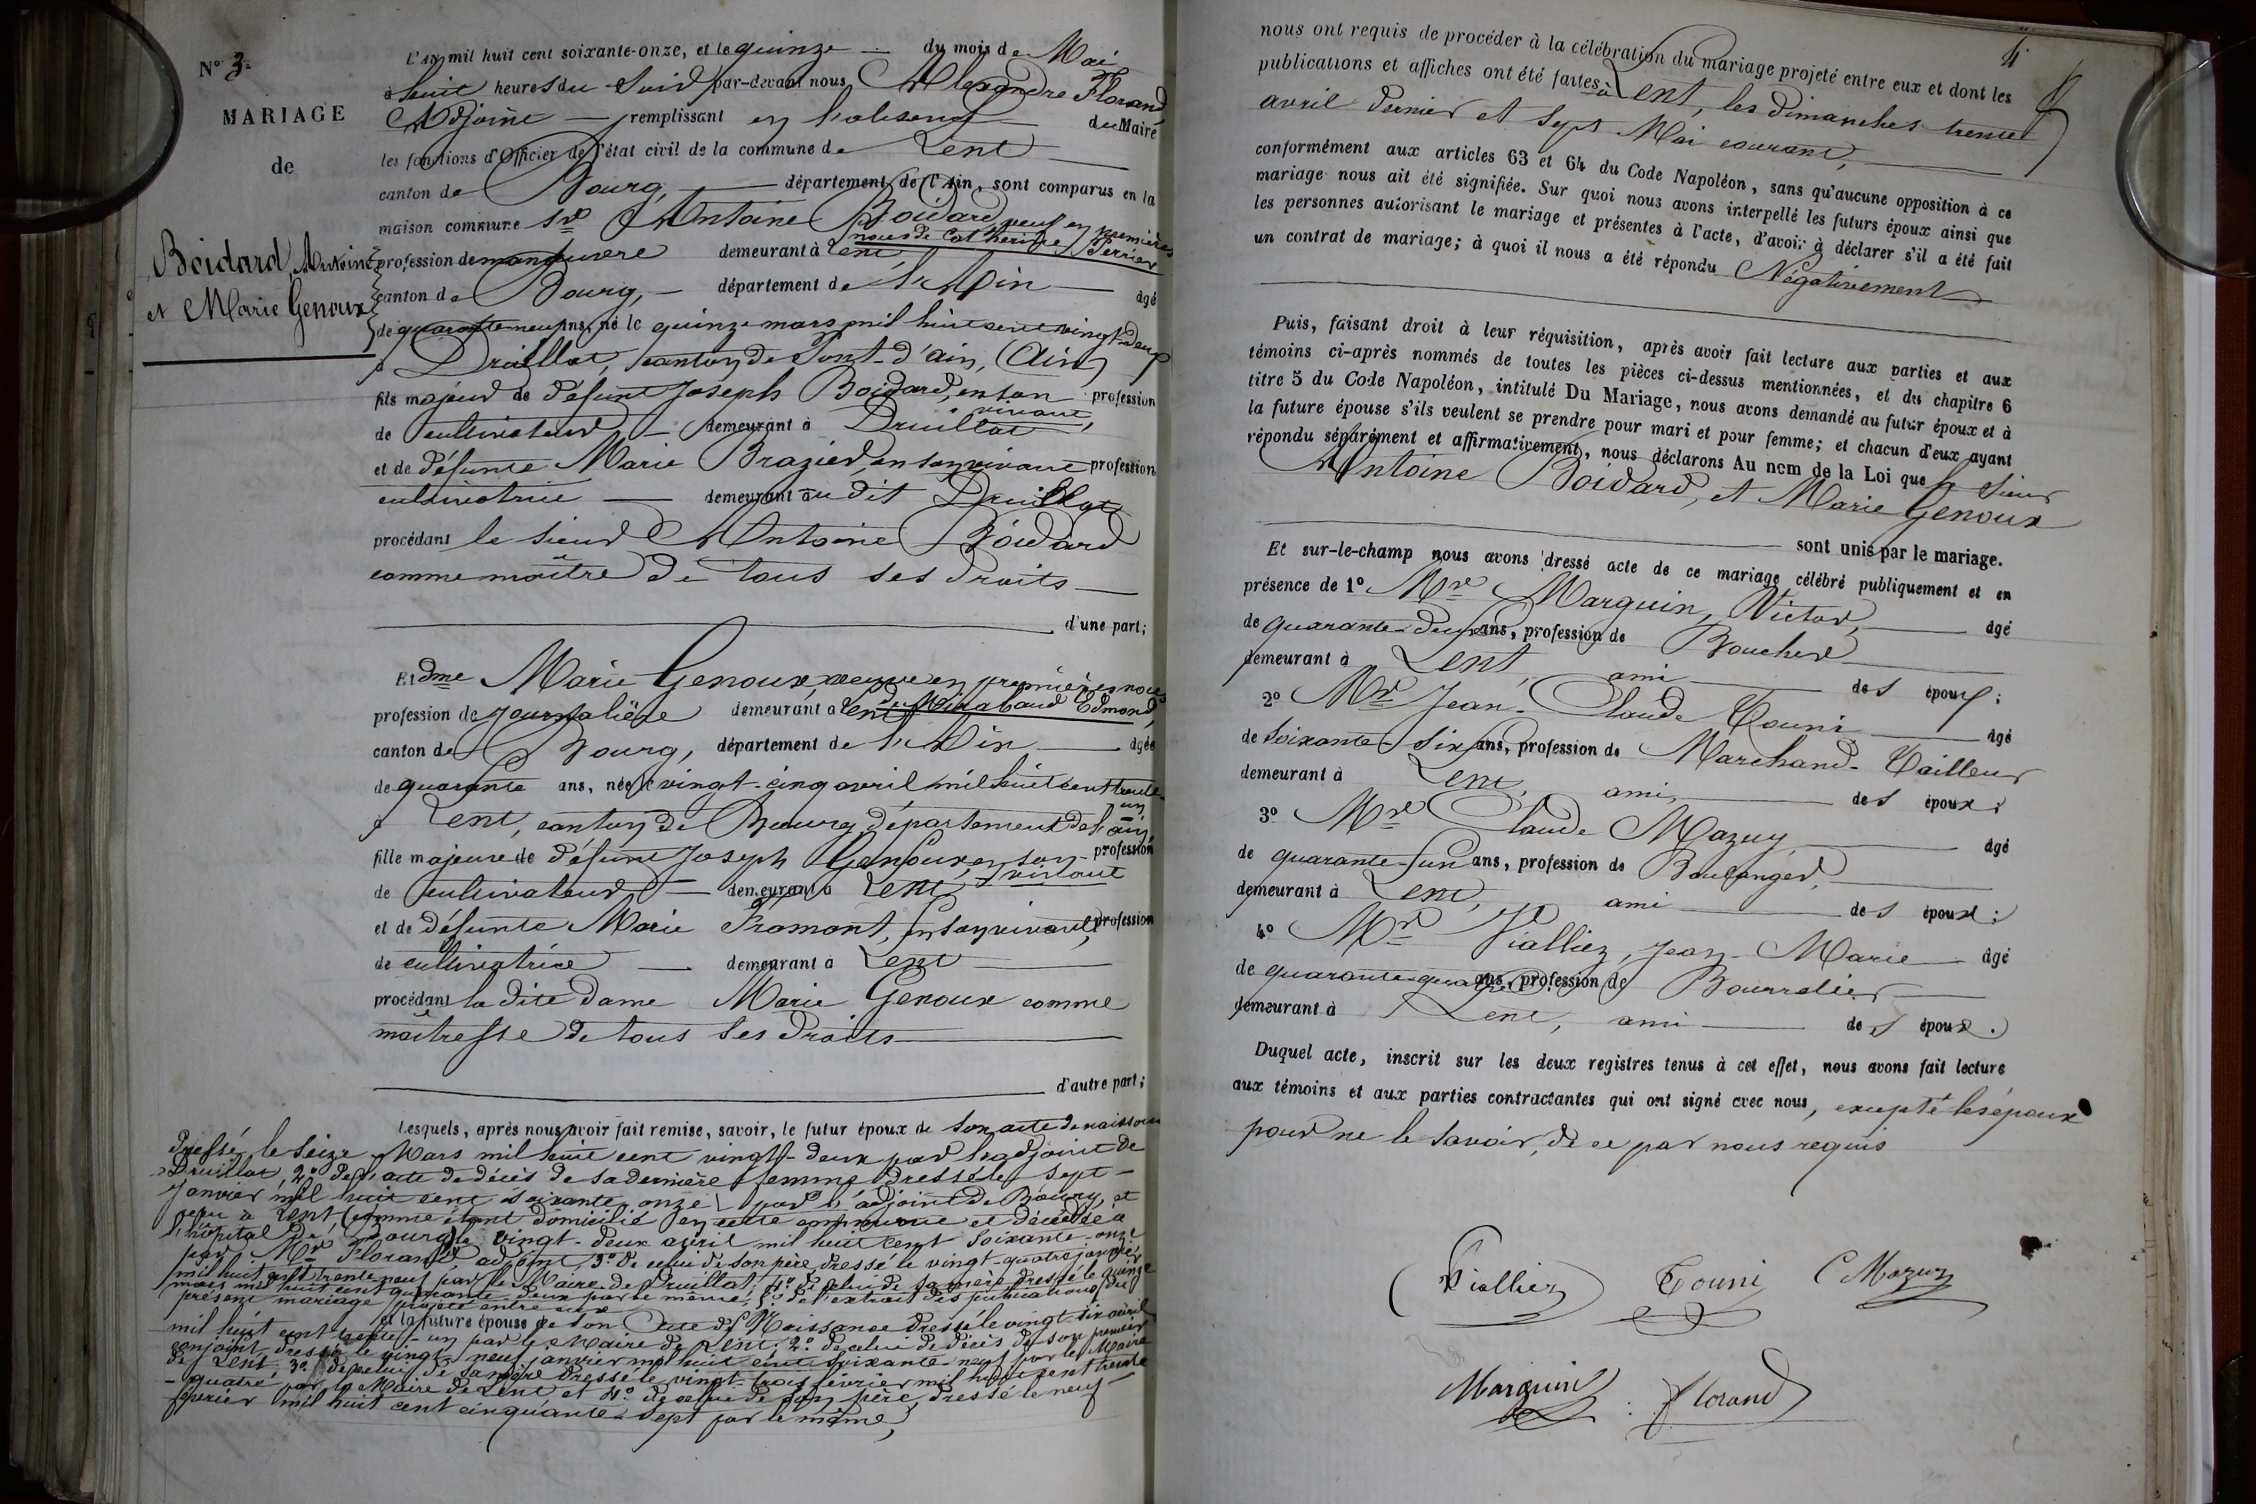 N° 3.
MARIAGE
de
Boidard Antoine
et Marie Genoux
L'an mil huit cent soixante-onze, et le quinze du mois de Mai
à huit heures du Soir par-devant nous Alexandre Florand,
Adjoint remplissant en l'absence du Maire
les fonctions d'Officier de l'état civil de la commune de Lent
canton de Bourg, département de l'Ain, sont comparus en la
maison commune Sr Antoine Boidard veuf en premières
noces de Catherine Perrier
profession de manœuvre demeurant à Lent
canton de Bourg, département de l'Ain âgé
de quarante neuf ans, né le quinze mars mil huit cent vingt-deux
à Druillat, canton de Pont-d'ain, (Ain)
fils majeur de défunt Joseph Boidard, en son vivant profession
de cultivateur demeurant à Druillat,
et de défunte Marie Brazier, en son vivant profession
cultivatrice demeurant au dit Druillat
procédant le sieur Antoine Boidard
comme maître de tous ses droits
d'une part;
Et dme Marie Genoux, veuve en premières noces
de Mirabaud Edmond,
profession de journalière demeurant à Lent
canton de Bourg, département de l'Ain âgée
de quarante ans, née le vingt-cinq avril mil huit cent trente-
un
à Lent, canton de Bourg, département de l'ain,
fille majeure de défunt Joseph Genoux, en son vivant profession
de cultivateur demeurant à Lent,
et de défunte Marie Fromont, en son vivant, profession
de cultivatrice demeurant à Lent
procédant la dite dame Marie Genoux comme
maîtresse de tous ses droits
d'autre part;
Lesquels, après nous avoir fait remise, savoir, le futur époux de son acte de naissance
dressé le seize Mars mil huit cent vingt-deux par l'adjoint de
Druillat, 2° de l'acte de décès de sa dernière femme dressé le sept
janvier mil huit cent soixante onze par l'adjoint de Bourg, et
reçu à Lent (comme étant domicilié en cette commune et décédée à
l'hôpital de Bourg) le vingt-deux avril mil huit cent soixante-onze
par Mr Florand, adjoint, 3° de celui de son père, dressé le vingt-quatre janvier
mil huit cent trente neuf par le Maire de Druillat, 4° de celui de sa mère dressé le quinze
mars mil huit cent quarante deux par le même, 5° de l'extrait des publications du
présent mariage projeté entre eux
et la future épouse de son Acte de Naissance dressé le vingt six avril
mil huit cent trente-un par le Maire de Lent, 2° de celui de décès de son premier
conjoint, dressé le vingt neuf janvier mil huit cent soixante-neuf par le Maire
de Lent, 3° de celui de sa mère dressé le vingt-trois février mil huit cent trente
-quatre par le Maire de Lent et 4° de celui de son père, dressé le neuf
février mil huit cent cinquante-sept par le même,
4.
nous ont requis de procéder à la célébration du mariage projeté entre eux et dont les
publications et affiches ont été faites à Lent, les dimanches trente
avril dernier et sept Mai courant,
conformément aux articles 63 et 64 du Code Napoléon, sans qu'aucune opposition à ce
mariage nous ait été signifiée. Sur quoi nous avons interpellé les futurs époux ainsi que
les personnes autorisant le mariage et présentes à l'acte, d'avoir à déclarer s'il a été fait
un contrat de mariage; à quoi il nous a été répondu Négativement
Puis, faisant droit à leur réquisition, après avoir fait lecture aux parties et aux
témoins ci-après nommés de toutes les pièces ci-dessus mentionnées, et du chapitre 6
titre 5 du Code Napoléon, intitulé Du Mariage, nous avons demandé au futur époux et à
la future épouse s'ils veulent se prendre pour mari et pour femme; et chacun d'eux ayant
répondu séparément et affirmativement, nous déclarons Au nom de la Loi que le Sieur
Antoine Boidard, et Marie Genoux
sont unis par le mariage.
Et sur-le-champ nous avons dressé acte de ce mariage célébré publiquement et en
présence de 1° Mr Marguin, Victor, âgé
de quarante-deux ans, profession de Boucher
demeurant à Lent, ami des époux;
2° Mr Jean-Claude Touni âgé
de soixante-six ans, profession de Marchand-Tailleur
demeurant à Lent, ami, des époux
3° Mr Claude Mazuy, âgé
de quarante-un ans, profession de Boulanger,
demeurant à Lent, ami des époux;
4° Mr Vialliez, Jean-Marie âgé
de quarante-quatre ans, profession de Bourrelier
demeurant à Lent, ami des époux.
Duquel acte, inscrit sur les deux registres tenus à cet effet, nous avons fait lecture
aux témoins et aux parties contractantes qui ont signé avec nous, excepté les époux
pour ne le savoir, de ce par nous requis
Viallier Touni C Mazuy
Marguin Florand